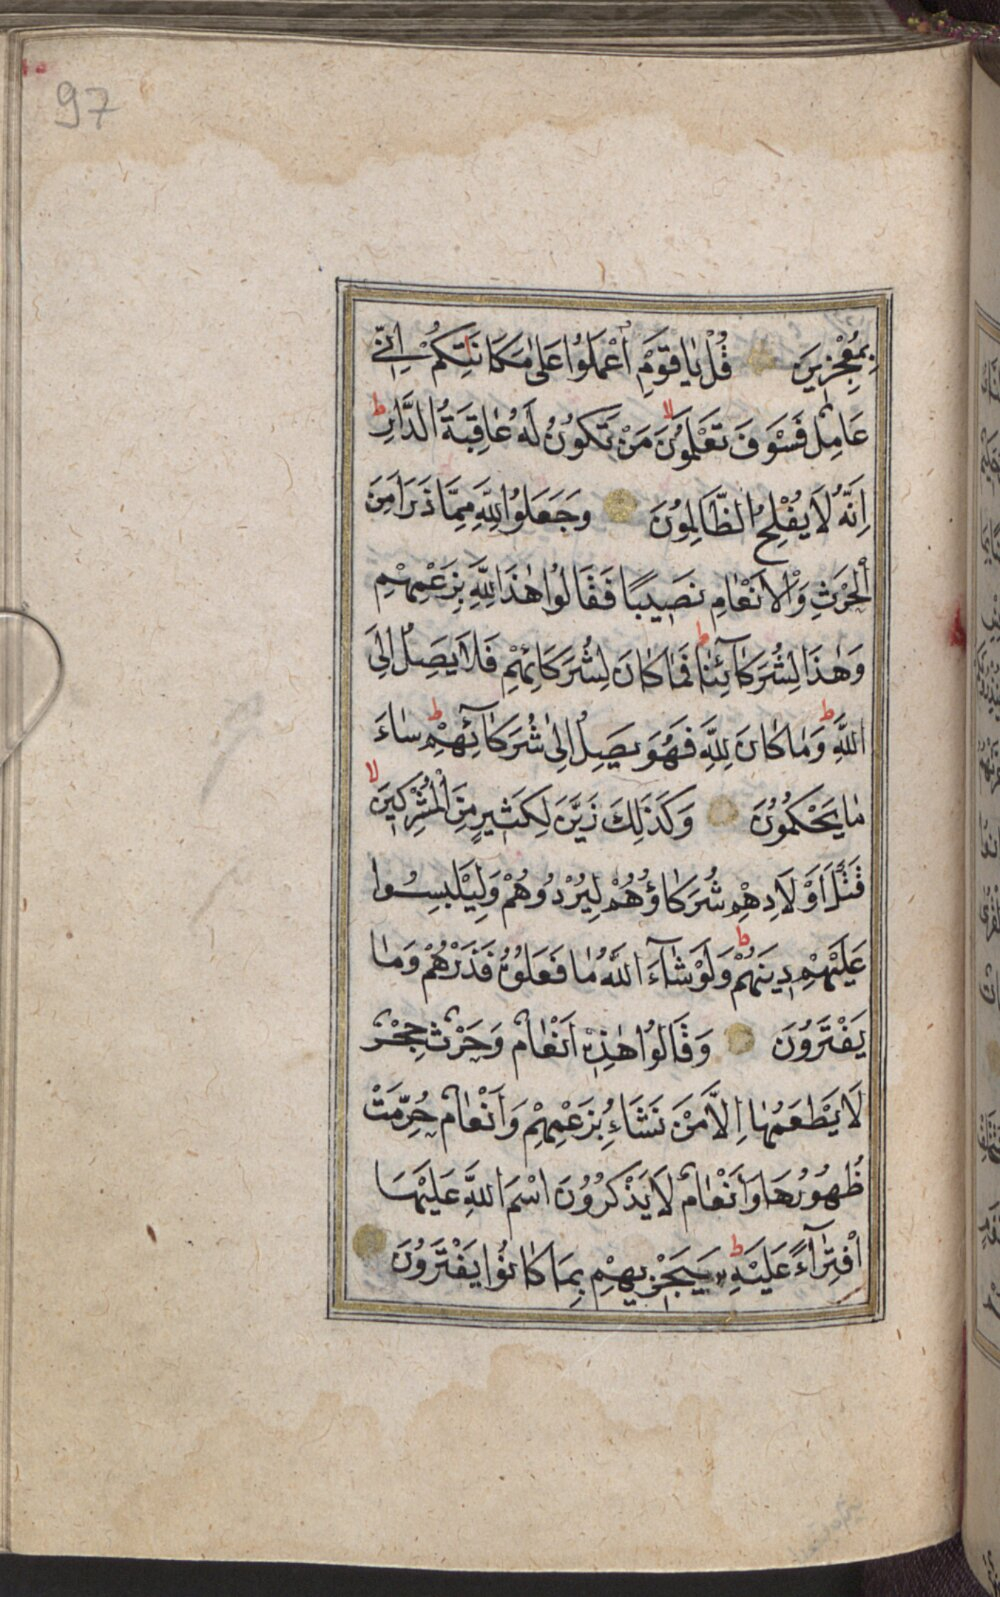 97
بِمُعْجِزِينَ قُلْ يَا قَوْمِ اعْمَلُوا عَلٰى مَكَانَتِكُمْ اِنّٖى
عَامِلٌ فَسَوْفَ تَعْلَمُونَ لا مَنْ تَكُونُ لَهُ عَاقِبَةُ الدَّارِ ط
اِنَّهُ لَا يُفْلِحُ الظَّالِمُونَ وَجَعَلُوا لِلّٰهِ مِمَّا ذَرَاَ مِنَ
الْحَرْثِ وَالْاَنْعَامِ نَصِيبًا فَقَالُوا هٰذَا لِلّٰهِ بِزَعْمِهِمْ
وَهٰذَا لِشُرَكَائِنَا ط فَمَا كَانَ لِشُرَكَائِهِمْ فَلَا يَصِلُ اِلَى
اللّٰهِ ط وَمَا كَانَ لِلّٰهِ فَهُوَ يَصِلُ اِلٰى شُرَكَائِهِمْ ط سَاءَ
مَا يَحْكُمُونَ وَكَذٰلِكَ زَيَّنَ لِكَثِيرٍ مِنَ الْمُشْرِكِينَ لا
قَتْلَ اَوْلَادِهِمْ شُرَكَاؤُهُمْ لِيُرْدُوهُمْ وَلِيَلْبِسُوا
عَلَيْهِمْ دِينَهُمْ ط وَلَوْ شَآءَ اللّٰهُ مَا فَعَلُوهُ فَذَرْهُمْ وَمَا
يَفْتَرُونَ وَقَالُوا هٰذِهٖ اَنْعَامٌ وَحَرْثٌ حِجْرٌ
لَا يَطْعَمُهَا اِلَّا مَنْ نَشَاءُ بِزَعْمِهِمْ وَاَنْعَامٌ حُرِّمَتْ
ظُهُورُهَا وَاَنْعَامٌ لَا يَذْكُرُونَ اسْمَ اللّٰهِ عَلَيْهَا
افْتِرَآءً عَلَيْهِ ط سَيَجْزِيهِمْ بِمَا كَانُوا يَفْتَرُونَ